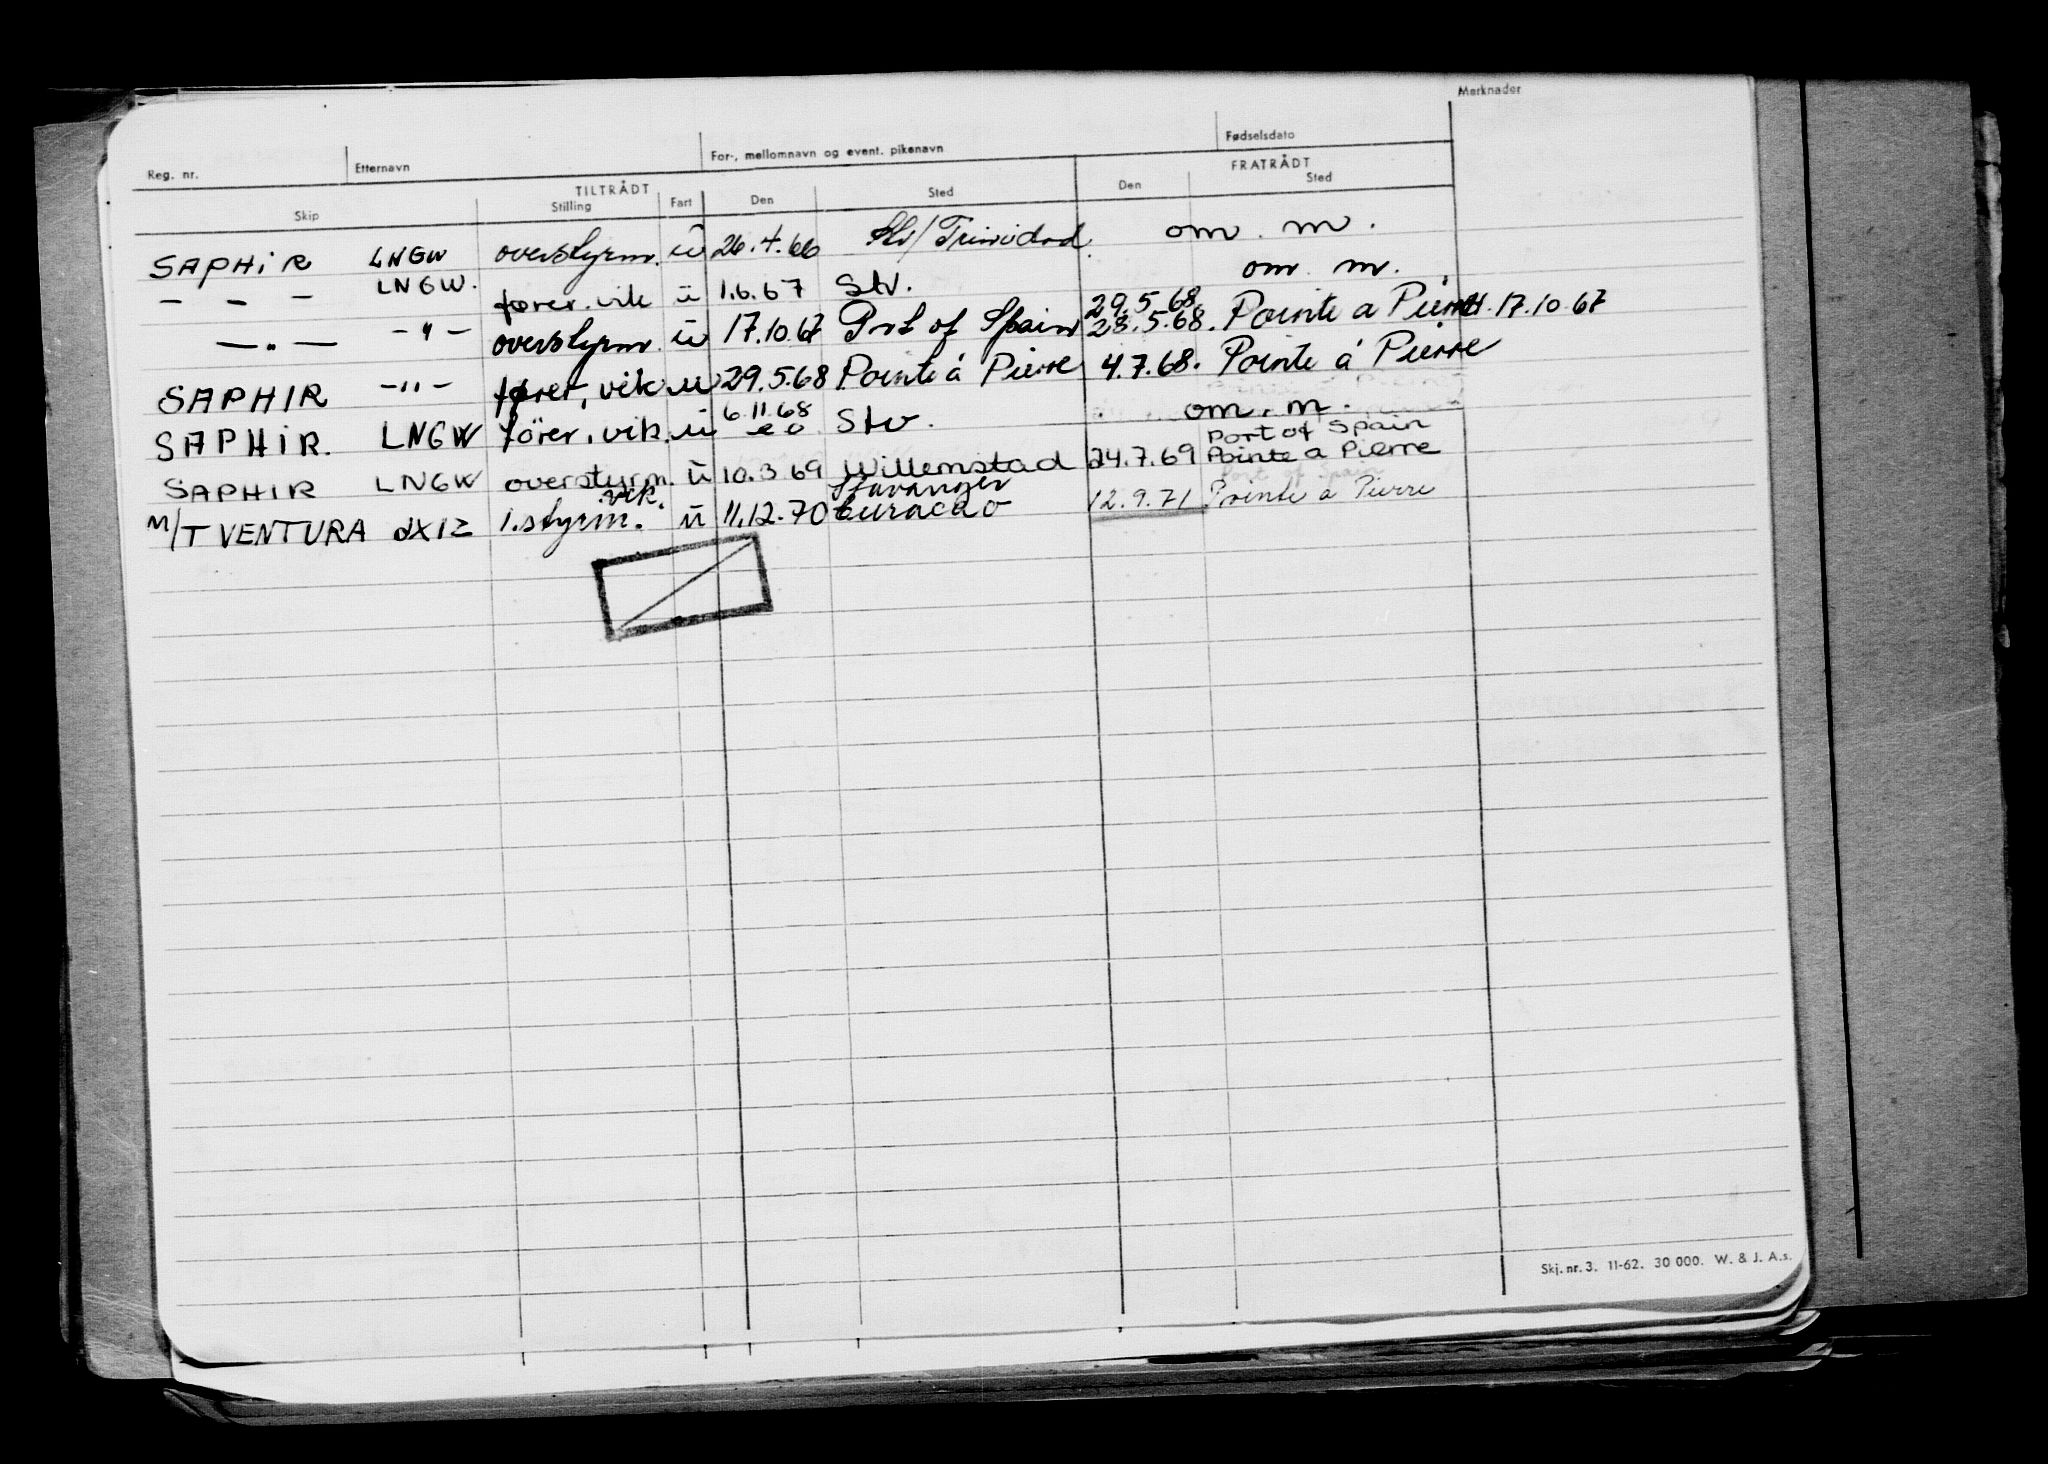 Merknader
Reg. nr. Etternavn For-, mellomnavn og event. pikenavn Fødselsdato
TILTRÅDT FRATRÅDT
Skip Stilling Fart Den Sted Den Sted
SAPHIR LNGW overstyrm. ü 26.4.66 Stv/Trinidad om. m.
— — — LNGW. fører. vik ü 1.6.67 Stv. om. m.
29.5.68
— " — — " — overstyrm. ü 17.10.67 Port of Spain 28.5.68. Pointe a Pierre 17.10.67
SAPHIR — " — fører, vik. u 29.5.68 Pointe á Pierre 4.7.68. Pointe á Pierre
6.11.68
SAPHIR. LNGW förer. vik. ü Stv. om. m.
Port of Spain
SAPHIR LNGW overstyrm. ü 10.3.69 Willemstad 24.7.69 Pointe a Pierre
vik. Stavanger Port of Spain
M/T VENTURA JXIZ 1.styrm. ü 11.12.70 Curacao 12.9.71 Pointe a Pierre
Skj. nr. 3. 11-62. 30 000. W. & J. A.s.